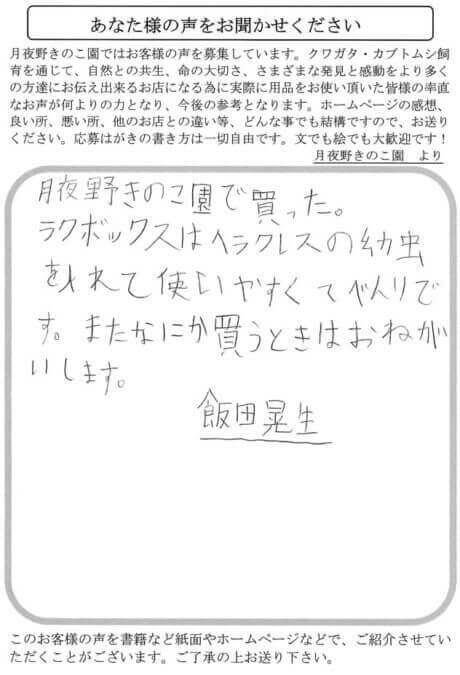 あなた様の声をお聞かせください
月夜野きのこ園ではお客様の声を募集しています。クワガタ・カブトムシ飼
育を通じて、自然との共生、命の大切さ、さまざまな発見と感動をより多く
の方達にお伝え出来るお店になる為に実際に用品をお使い頂いた皆様の率直
なお声が何よりの力となり、今後の参考となります。ホームページの感想、
良い所、悪い所、他のお店との違い等、どんな事でも結構ですので、お送り
ください。応募はがきの書き方は一切自由です。文でも絵でも大歓迎です！
月夜野きのこ園　より
月夜野きのこ園で買った。
ラクボックスはヘラクレスの幼虫
を入れて使いやすくてべんりで
す。またなにか買うときはおねが
いします。
飯田晃生
このお客様の声を書籍など紙面やホームページなどで、ご紹介させてい
ただくことがございます。ご了承の上お送り下さい。